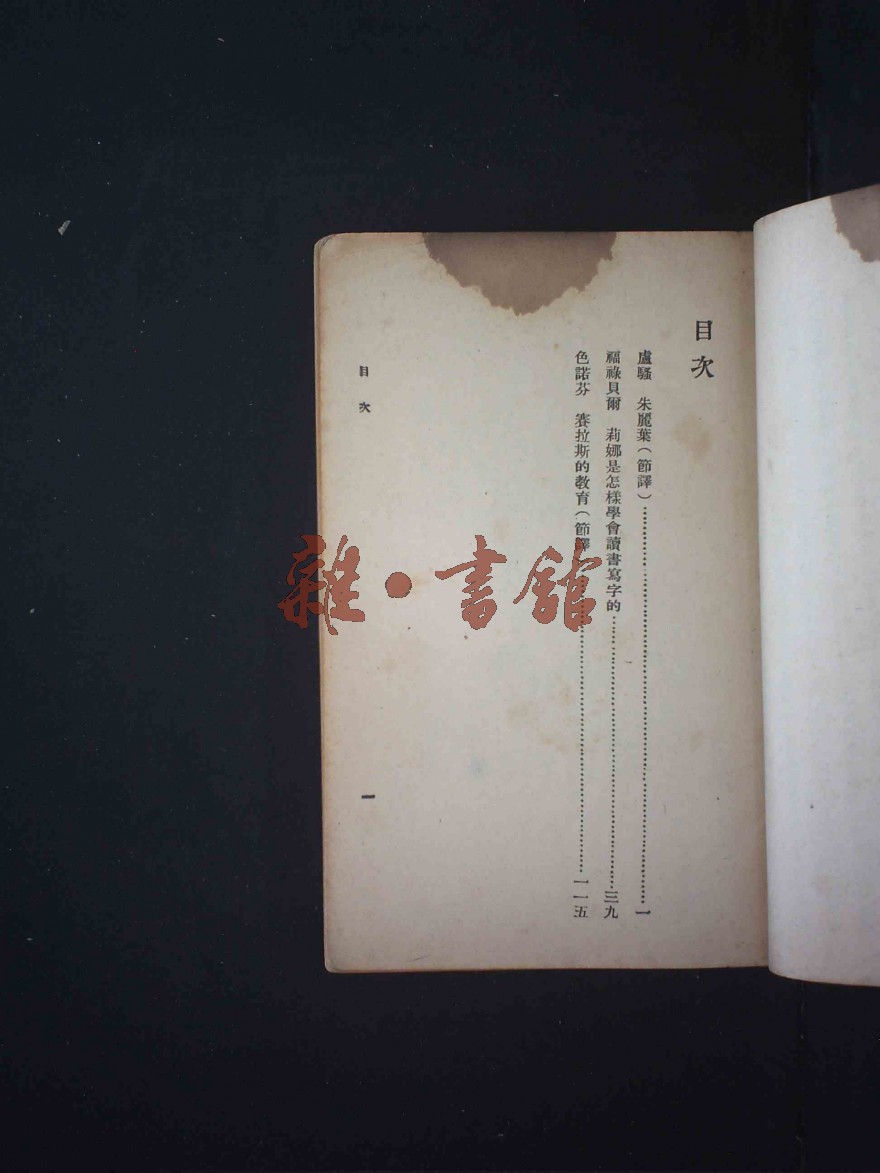 目次
盧騷　朱麗葉（節譯）……………………一
福祿貝爾　莉娜是怎樣學會讀書寫字的……………………三九
色諾芬　賽拉斯的教育（節譯……………………一一五
目次
一
雜·書館